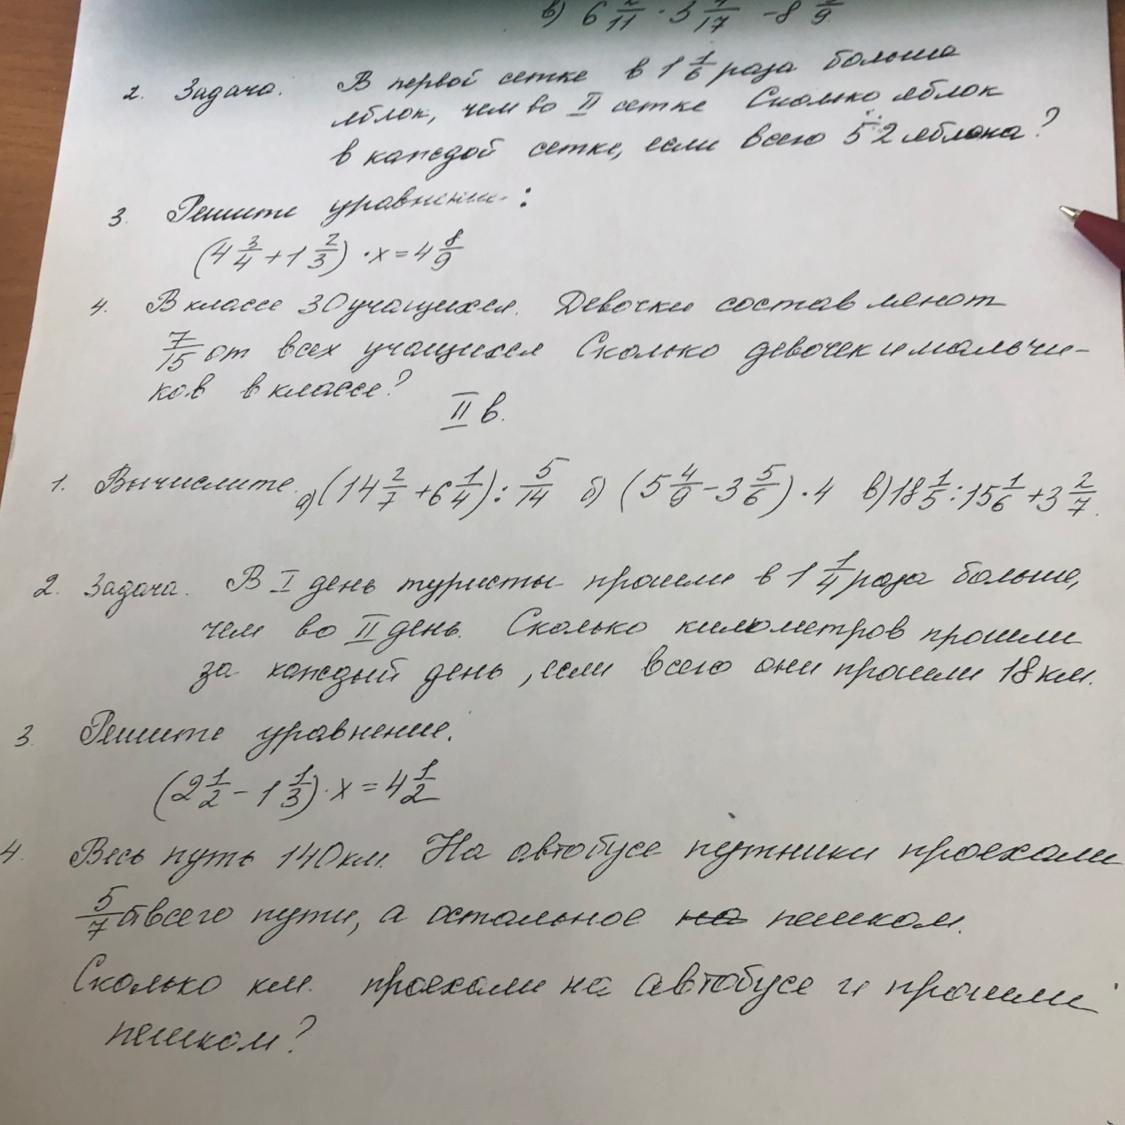 в) 6 2/11 · 3 4/17 - 8 /9
2. Задача. В первой сетке в 1 1/6 раза больше
яблок, чем во II сетке Сколько яблок
в каждой сетке, если всего 52 яблока?
3. Решите уравнение:
(4 3/4 + 1 2/3) · x = 4 8/9
4. В классе 30 учащихся. Девочки составляют
7/15 от всех учащихся Сколько девочек и мальчи-
ков в классе?
II в.
1. Вычислите. а) (14 2/7 + 6 1/4) : 5/14 б) (5 4/9 - 3 5/6) · 4 в) 18 1/5 : 15 1/6 + 3 2/7.
2. Задача. В I день туристы прошли в 1 1/4 раза больше,
чем во II день. Сколько километров прошли
за каждый день, если всего они прошли 18 км.
3. Решите уравнение.
(2 1/2 - 1 1/3) · x = 4 1/2
4. Весь путь 140 км. На автобусе путники проехали
5/7 всего пути, а остальное на пешком.
Сколько км. проехали на автобусе и прошли
пешком?